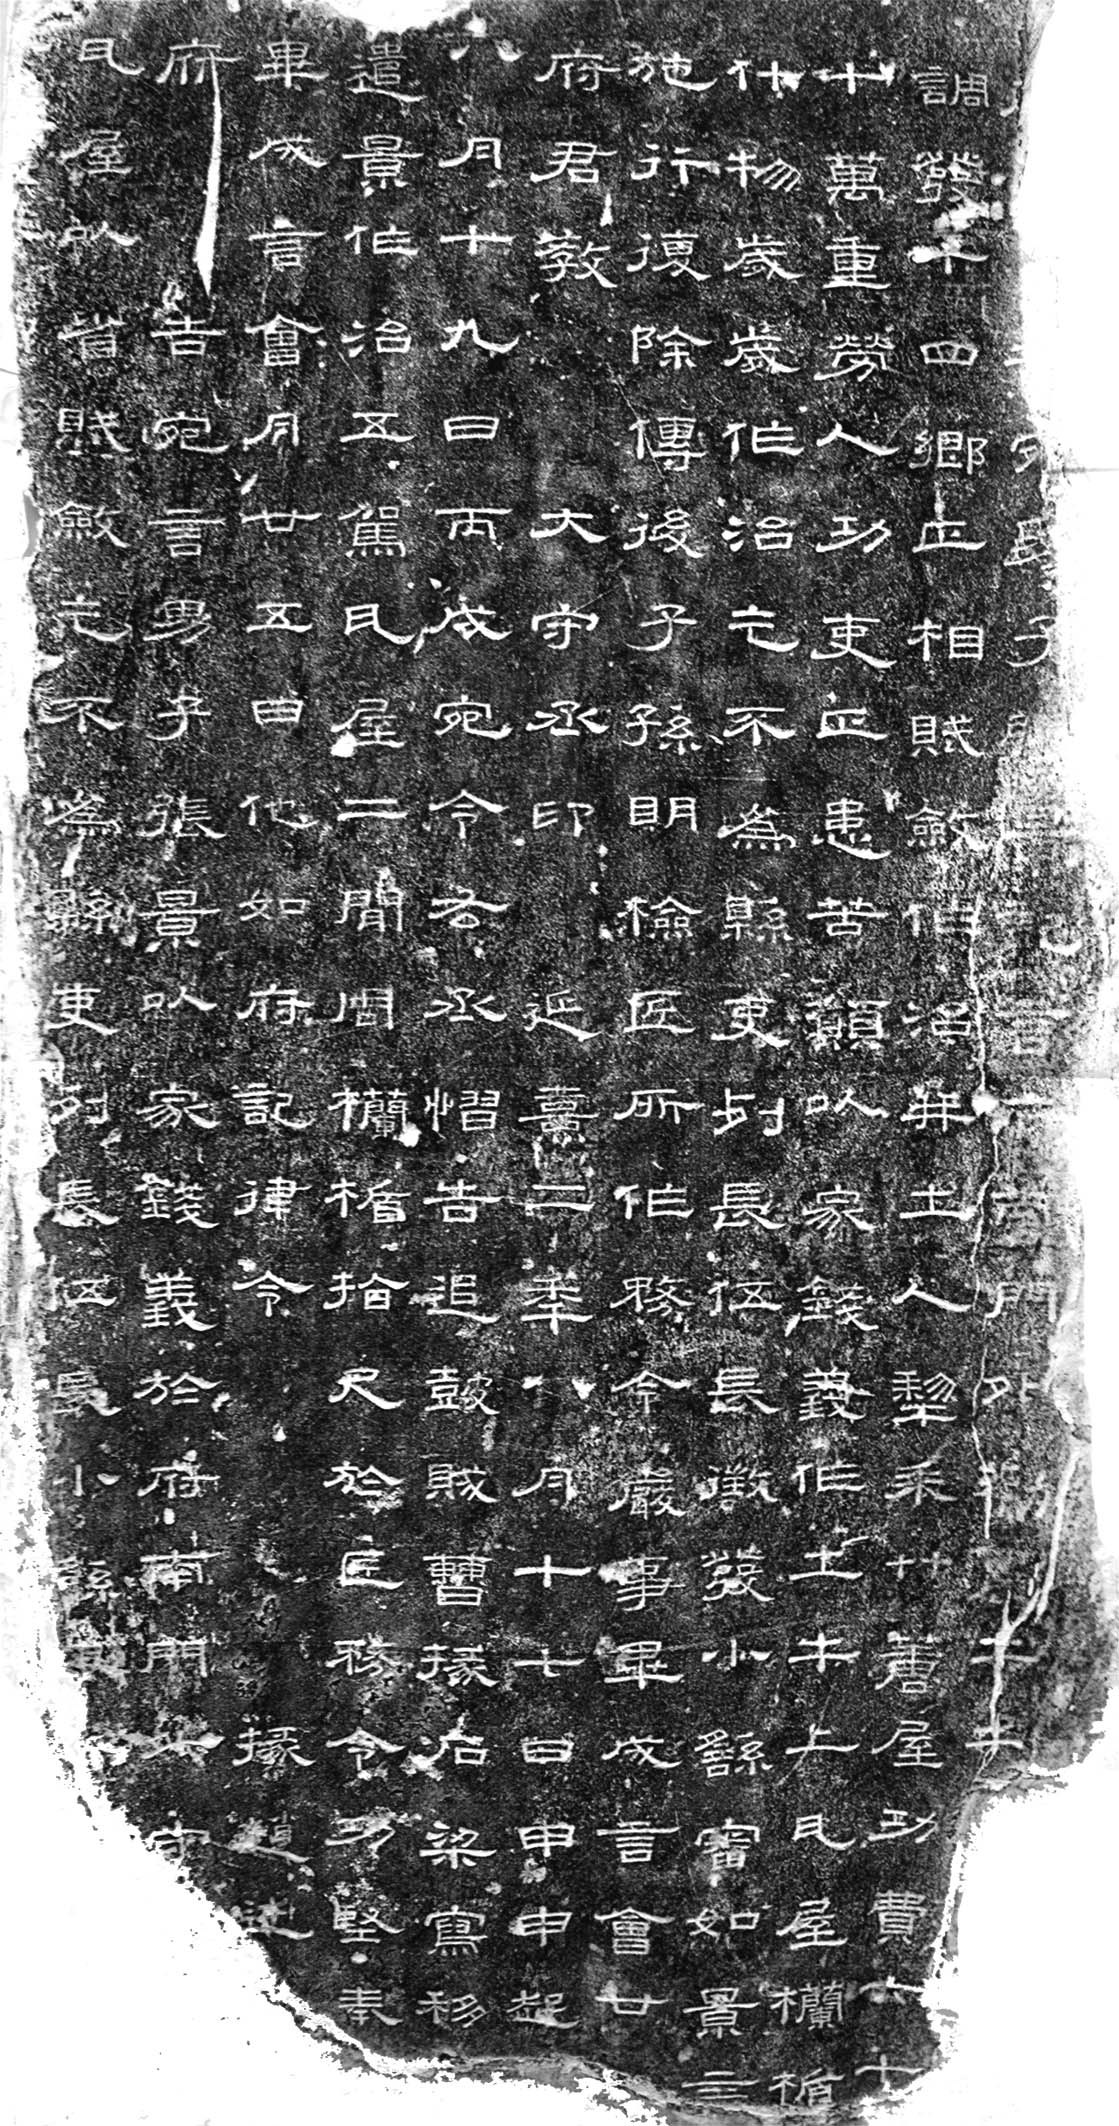 宛 子 言府南門外 土牛
調發十四鄉正相賦斂作治并土人犁耒艹蓐屋功費六七
十萬重勞人功吏正患苦願以家錢義作土牛上瓦屋欄楯
什物歲歲作治乞不為縣吏列長伍長徵發小繇審如景言
施行復除傳後子孫明檢匠所作務令嚴事畢成言會廿
府君教 大守丞印 延熹二年八月十七日甲申起
八月十九日丙戌宛令右丞慴告追鼓賊曹掾石梁寫移
遣景作治五駕瓦屋二間周欄楯拾尺於匠務令功堅奉
畢成言會月廿五日他如府記律令 掾趙述
府 告宛言男子張景以家錢義於府南門外守
瓦屋以省賦斂乞不為縣吏列長伍長小繇